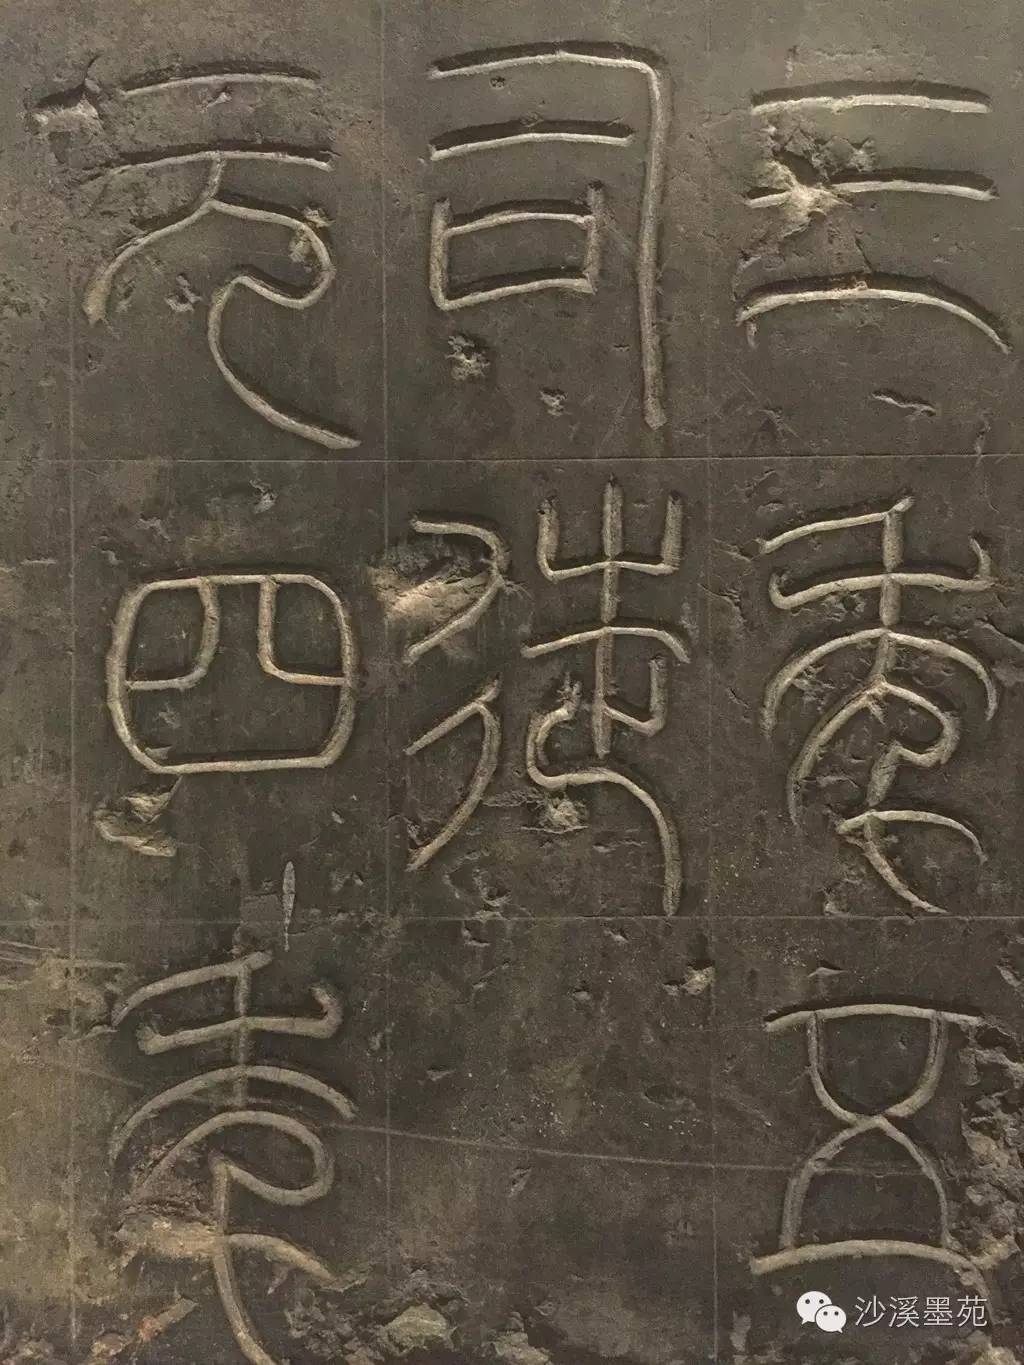 三年五
司徒
元四年
沙溪墨苑